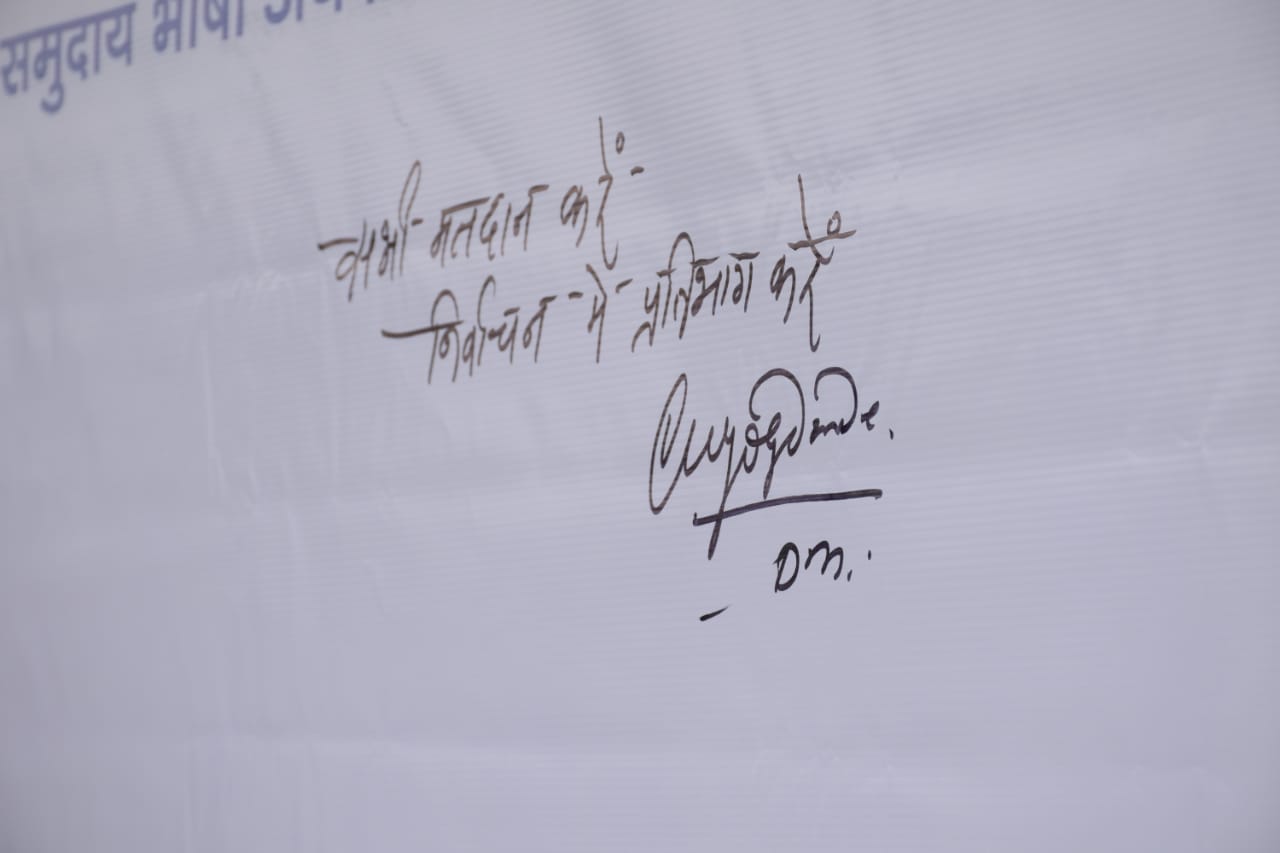 समुदाय भाषा
सभी मतदान करें
निर्वाचन में प्रतिभाग करें
DM.